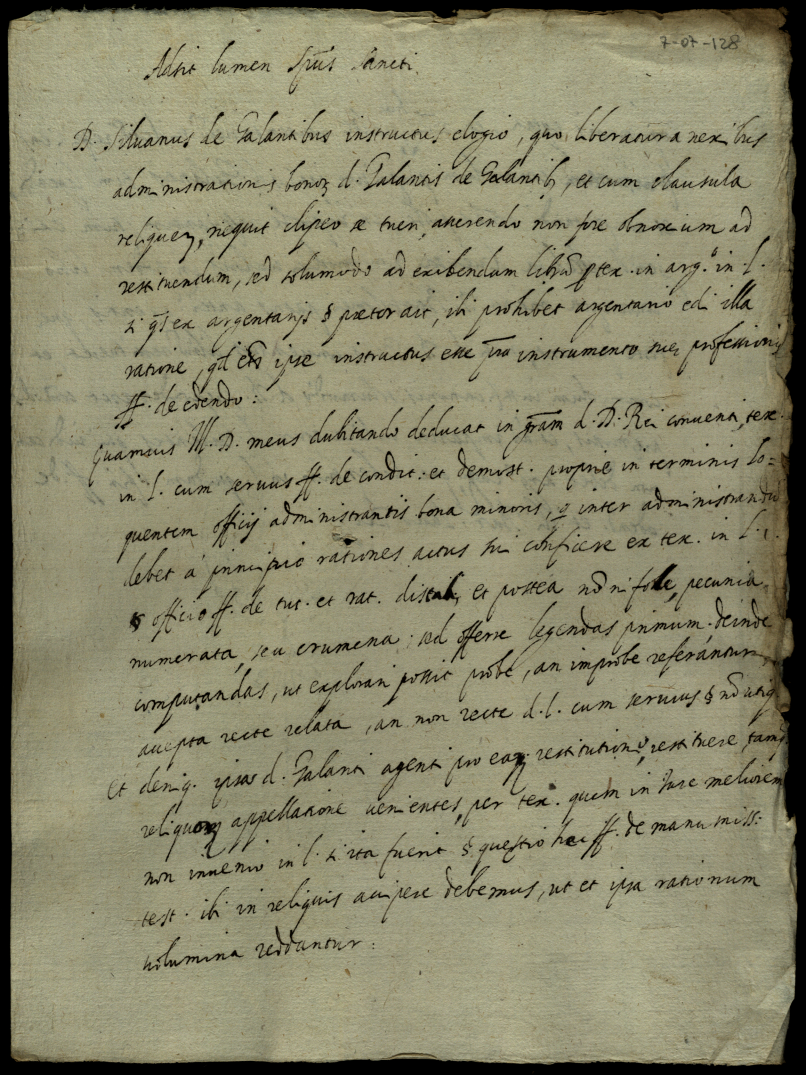 7-07-128
Adsit lumen Sp̄us Sancti
D. Siluanus de Galantibus instructus elogio, quo liberatur a nexibus
administrationis bonoꝝ d. Galantis de Galantib, et cum clausula
reliquoꝝ, nequit clipeo se tueri, asserendo non fore obnoxium ad
restituendum, sed solumodo ad exibendum librū tex. in arg.º in l.
si q̄s ex argentarijs § prætor ait, ibi prohibet argentario edi illa
ratione, q̄d etc̄ ipse instructus esse instrumento suę professionis
ff. de edendo:
Quamuis M. D. meus dubitando deducat in gr̄am d. D. Rei conuenti, tex.
in l. cum seruus ff. de condit. et demost. proprie in terminis lo=
quentem officij administrantis bona minoris, inter administrandū
debet à principio rationes actus sui conficere ex tex. in l. 1.
§ officio ff. de tut. et rat. distrah, et postea nō folle, pecunia
numerata, seu crumena: sed offerre legendas primum, deinde
computandas, ut explorari possit probe, an improbe referantur,
accepta recte relata, an non recte d. l. cum seruus § nō utiq
Et deniq. ipsas d. Galanti agenti pro eaꝝ restitutione, restituere, tamq
reliquoꝝ appellatione uenientes, per tex. quem in Iure meliorem
non inuenio in l. si ita fuerit § questio ff. de manumiss:
test. ibi in reliquis accipere debemus, ut et ipsa rationum
uolumina reddantur: